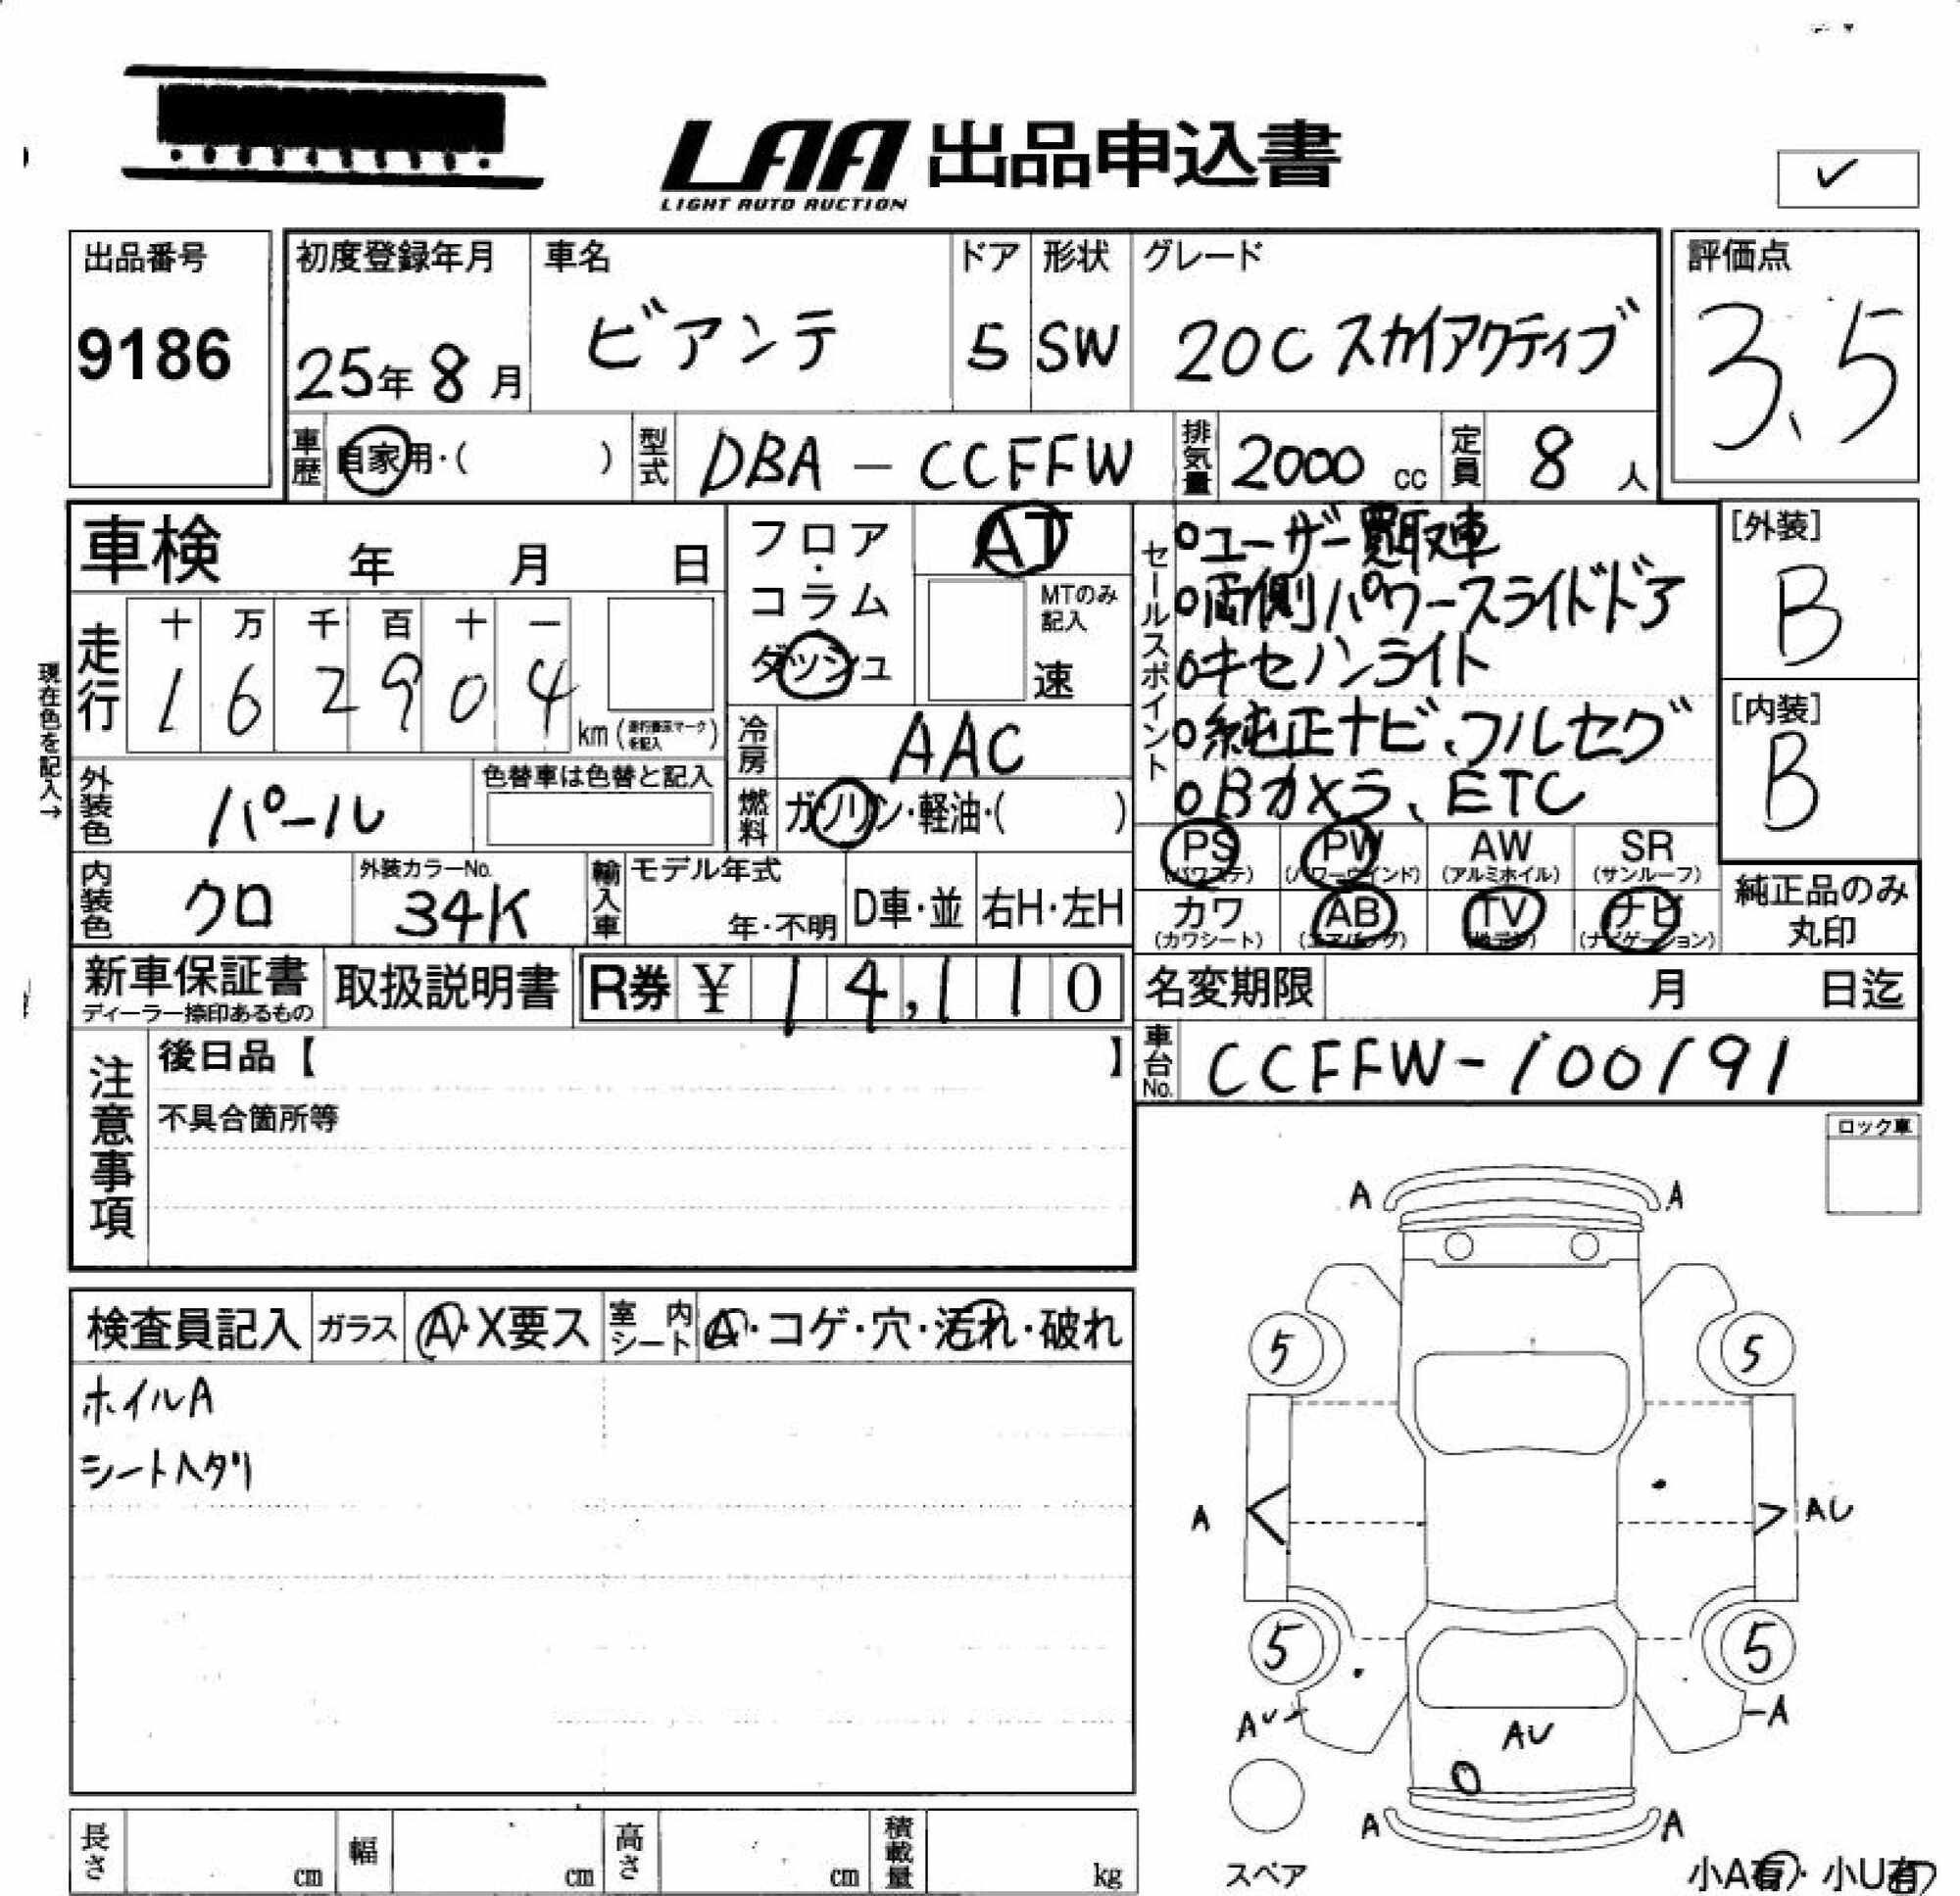 LAA 出品申込書
LIGHT AUTO AUCTION
✓
出品番号
9186
初度登録年月
25年 8月
車名
ビアンテ
ドア
5
形状
SW
グレード
20C スカイアクティブ
評価点
3.5
車歴 自家用・( )
型式 DBA - CCFFW
排気量 2000 cc
定員 8 人
車検 年 月 日
現在色を記入→
走行
十 万 千 百 十 一
1 6 2 9 0 4 km
外装色 パール
色替車は色替と記入
内装色 クロ
外装カラーNo.
34K
フロア・コラム
ダッシュ
AT
MTのみ記入
速
冷房 AAC
燃料 ガソリン・軽油・( )
輸入車
モデル年式
年・不明
D車・並
右H・左H
セールスポイント
ユーザー買取車
両側パワースライドドア
キセノンライト
純正ナビ、フルセグ
Bカメラ、ETC
[外装]
B
[内装]
B
PS
(パワステ)
PW
(パワーウインド)
AW
(アルミホイル)
SR
(サンルーフ)
カワ
(カワシート)
AB
(エアバッグ)
TV
ナビ
(ナビゲーション)
純正品のみ丸印
新車保証書
ディーラー捺印あるもの
取扱説明書
R券 ¥ 14,110
名変期限 月 日迄
車台No. CCFFW-100191
注意事項
後日品【 】
不具合箇所等
ロック車
検査員記入
ガラス A・X要ス
室内シート A・コゲ・穴・汚れ・破れ
ホイルA
シートヘタリ
A A
5 5
A AU
5 5
AU A
AU
A A
スペア
小A有・小U有
長さ cm
幅 cm
高さ cm
積載量 kg